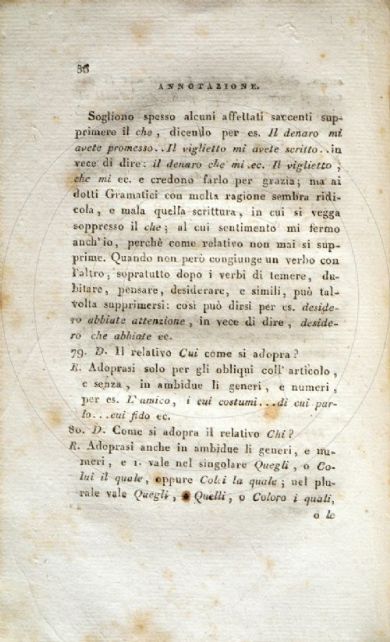 ANNOTAZIONE.
Sogliono spesso alcuni affettati saccenti sup-
primere il che, dicendo per es. Il denaro mi
avete promesso.. Il viglietto mi avete scritto.. in
vece di dire: il denaro che mi ec. Il viglietto,
che mi ec. e credono farlo per grazia; ma ai
dotti Gramatici con molta ragione sembra ridi-
cola, e mala quella scrittura, in cui si vegga
soppresso il che; al cui sentimento mi fermo
anch'io, perchè come relativo non mai si sup-
prime. Quando non però congiunge un verbo con
l'altro; sopratutto dopo i verbi di temere, du-
bitare, pensare, desiderare, e simili, può tal-
volta supprimersi: così può dirsi per es. deside-
ro abbiate attenzione, in vece di dire, deside-
ro che abbiate ec.
79. D. Il relativo Cui come si adopra?
R. Adoprasi solo per gli obliqui coll'articolo,
e senza, in ambidue li generi, e numeri,
per es. L'amico, i cui costumi...di cui par-
lo...cui fido ec.
80. D. Come si adopra il relativo Chi?
R. Adoprasi anche in ambidue li generi, e nu-
meri, e 1. vale nel singolare Quegli, o Co-
lui il quale, oppure Colei la quale; nel plu-
rale vale Quegli, o Quelli, o Coloro i quali,
o le